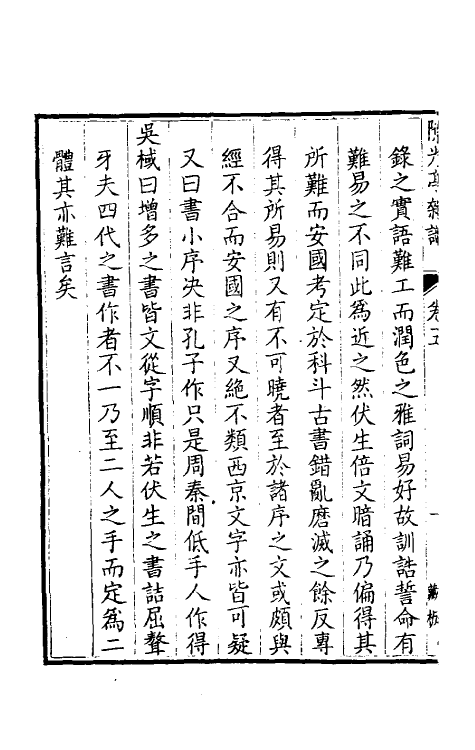 錄之實語難工而潤色之雅詞易好故訓誥誓命有
難易之不同此爲近之然伏生倍文暗誦乃偏得其
所難而安國考定於科斗古書錯亂磨滅之餘反專
得其所易則又有不可曉者至於諸序之文或頗與
經不合而安國之序又絶不類西京文字亦皆可疑
又曰書小序决非孔子作只是周秦間低手人作得
吳棫曰增多之書皆文從字順非若伏生之書詰屈聱
牙夫四代之書作者不一乃至二人之手而定爲二
體其亦難言矣